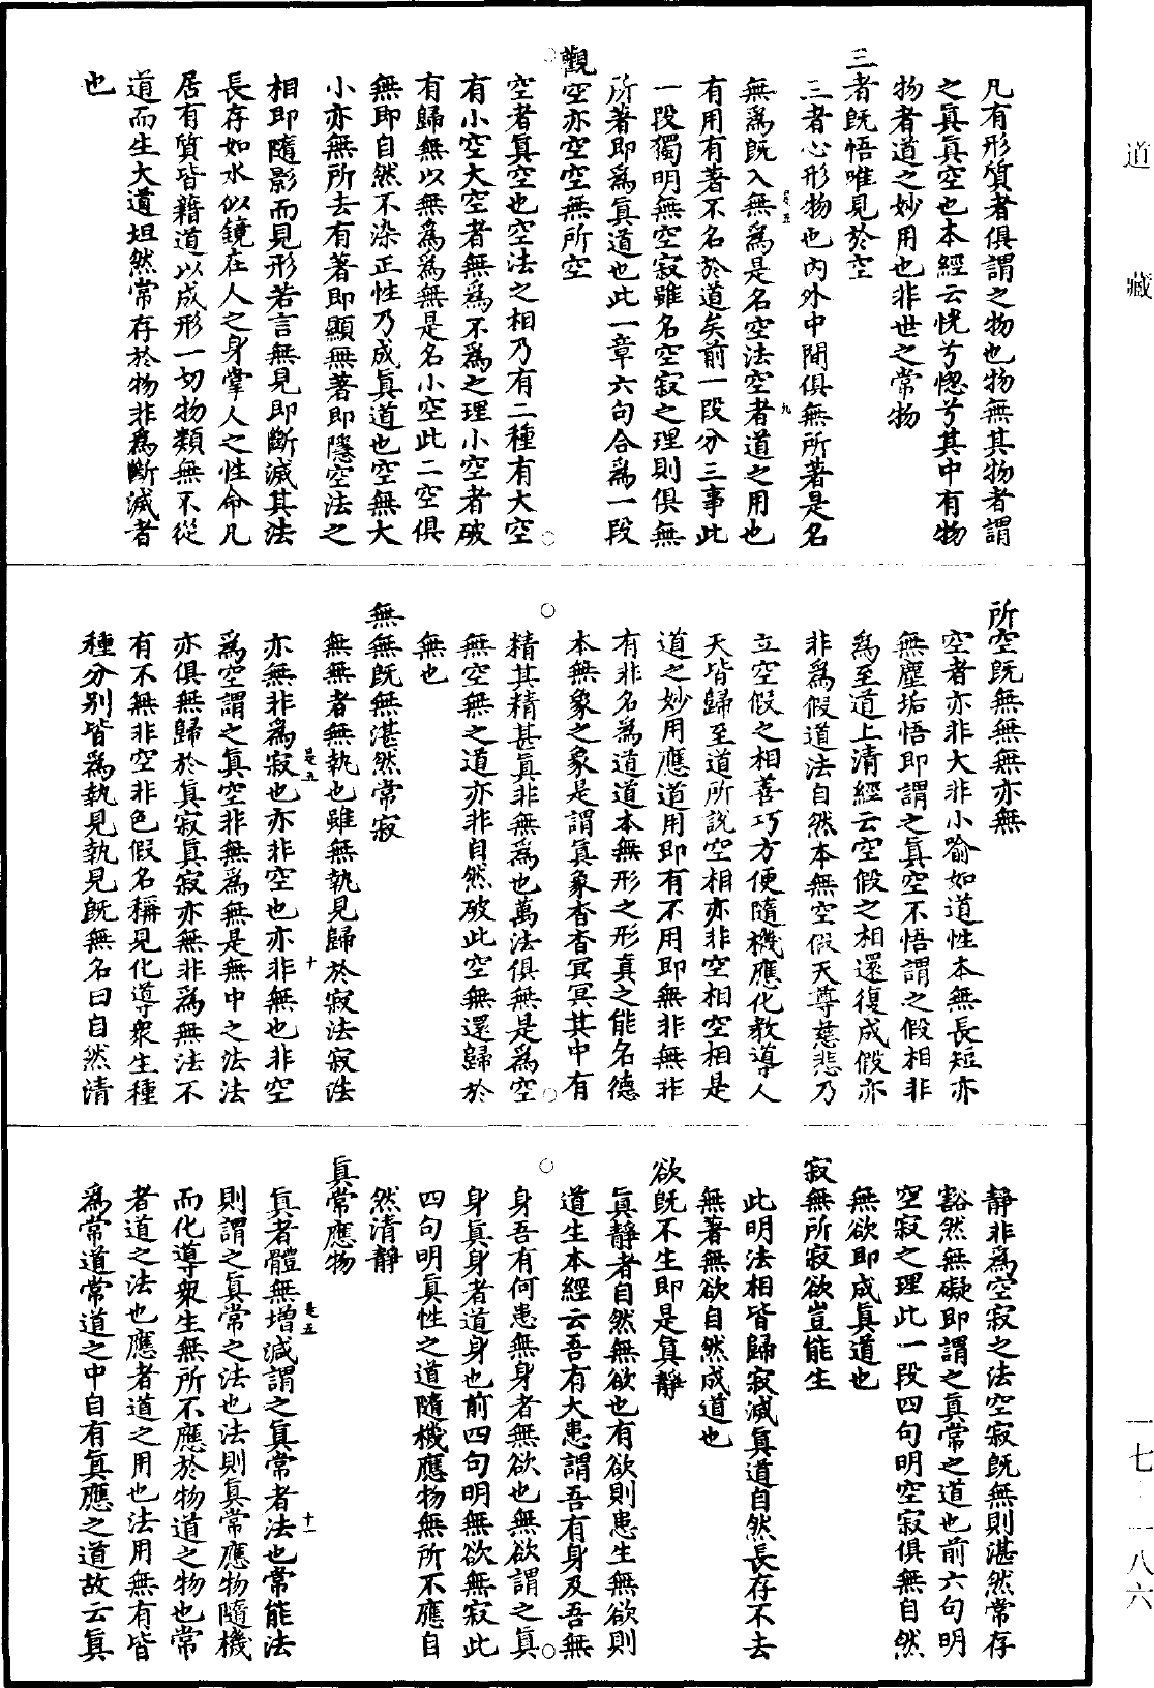 道藏
一七－一八六
凡有形質者俱謂之物也物無其物者謂
之眞眞空也本經云恍兮惚兮其中有物
物者道之妙用也非世之常物
三者既悟唯見於空
三者心形物也內外中間俱無所著是名
無爲既入無爲是名空法空者道之用也
有用有著不名於道矣前一段分三事此
一段獨明無空寂雖名空寂之理則俱無
所著即爲眞道也此一章六句合爲一段
觀空亦空空無所空
空者眞空也空法之相乃有二種有大空
有小空大空者無爲不爲之理小空者破
有歸無以無爲爲無是名小空此二空俱
無即自然不染正性乃成眞道也空無大
小亦無所去有著即顯無著即隱空法之
相即隨影而見形若言無見即斷滅其法
長存如水似鏡在人之身掌人之性命凡
居有質皆藉道以成形一切物類無不從
道而生大道坦然常存於物非爲斷滅者
也
所空既無無無亦無
空者亦非大非小喻如道性本無長短亦
無塵垢悟即謂之眞空不悟謂之假相非
爲至道上清經云空假之相還復成假亦
非爲假道法自然本無空假天尊慈悲乃
立空假之相善巧方便隨機應化教導人
天皆歸至道所說空相亦非空相空相是
道之妙用應道用即有不用即無非無非
有非名爲道道本無形之形真之能名德
本無象之象是謂眞象杳杳冥冥其中有
精其精甚眞非無爲也萬法俱無是爲空
無空無之道亦非自然破此空無還歸於
無也
無無既無湛然常寂
無無者無執也雖無執見歸於寂法寂法
亦無非爲寂也亦非空也亦非無也非空
爲空謂之眞空非無爲無是無中之法法
亦俱無歸於眞寂眞寂亦無非爲無法不
有不無非空非色假名稱見化導衆生種
種分別皆爲執見執見既無名曰自然清
靜非爲空寂之法空寂既無則湛然常存
豁然無礙即謂之眞常之道也前六句明
空寂之理此一段四句明空寂俱無自然
無欲即成眞道也
寂無所寂欲豈能生
此明法相皆歸寂滅眞道自然長存不去
無著無欲自然成道也
欲既不生即是眞靜
眞靜者自然無欲也有欲則患生無欲則
道生本經云吾有大患謂吾有身及吾無
身吾有何患無身者無欲也無欲謂之眞
身眞身者道身也前四句明無欲無寂此
四句明眞性之道隨機應物無所不應自
然清靜
眞常應物
眞者體無增減謂之眞常者法也常能法
則謂之眞常之法也法則眞常應物隨機
而化導衆生無所不應於物道之物也常
者道之法也應者道之用也法用無有皆
爲常道常道之中自有眞應之道故云眞
是五
九
是五
十
是五
十一